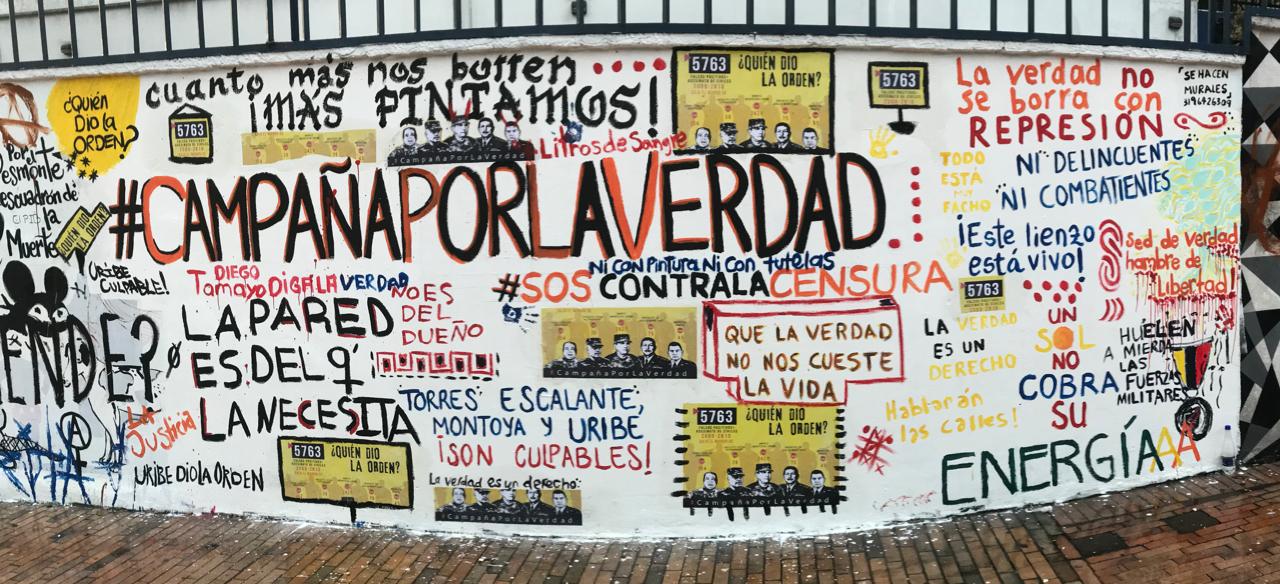 cuanto más nos borren
¡MÁS PINTAMOS!
¿Quién
Dio la
ORDEN?
5763
5763
¿QUIÉN DIO
LA ORDEN?
#CampañaPorLaVerdad
#CampañaPorLaVerdad
Litros de Sangre
5763
La verdad no
se borra con
REPRESIÓN
SE HACEN
MURALES
Por el
desmonte
escuadrón de
la
Muerte
¿QUIÉN DIO
LA ORDEN?
#CAMPAÑAPORLAVERDAD
TODO
ESTÁ
MUY
FACHO
NI DELINCUENTES
NI COMBATIENTES
¡Este lienzo
está vivo!
Sed de verdad
hambre de
Libertad!
URIBE
CULPABLE!
DIEGO
Tamayo DIGA LA VERDAD
NO ES
DEL
DUEÑO
Ni CON PiNtURA Ni CoN tutelas
#SOS CONTRALACENSURA
ENDE?
LA PARED
ES DEL q'
LA NECESITA
#CampañaPorLaVerdad
QUE LA VERDAD
NO NOS CUESTE
LA VIDA
5763
LA VERDAD
ES UN
DERECHO
UN
SOL
NO
COBRA
SU
ENERGÍA
HUELEN
A MIERDA
LAS
FUERZAS
MILITARES
LA
Justicia
URIBE DIO LA ORDEN
5763
¿QUIÉN DIO
LA ORDEN?
TORRES ESCALANTE,
MONTOYA Y URIBE
¡SON CULPABLES!
La verdad es un derecho:
#CampañaPorLaVerdad
5763
¿QUIÉN DIO
LA ORDEN?
#CampañaPorLaVerdad
Hablarán
las calles!
AAA